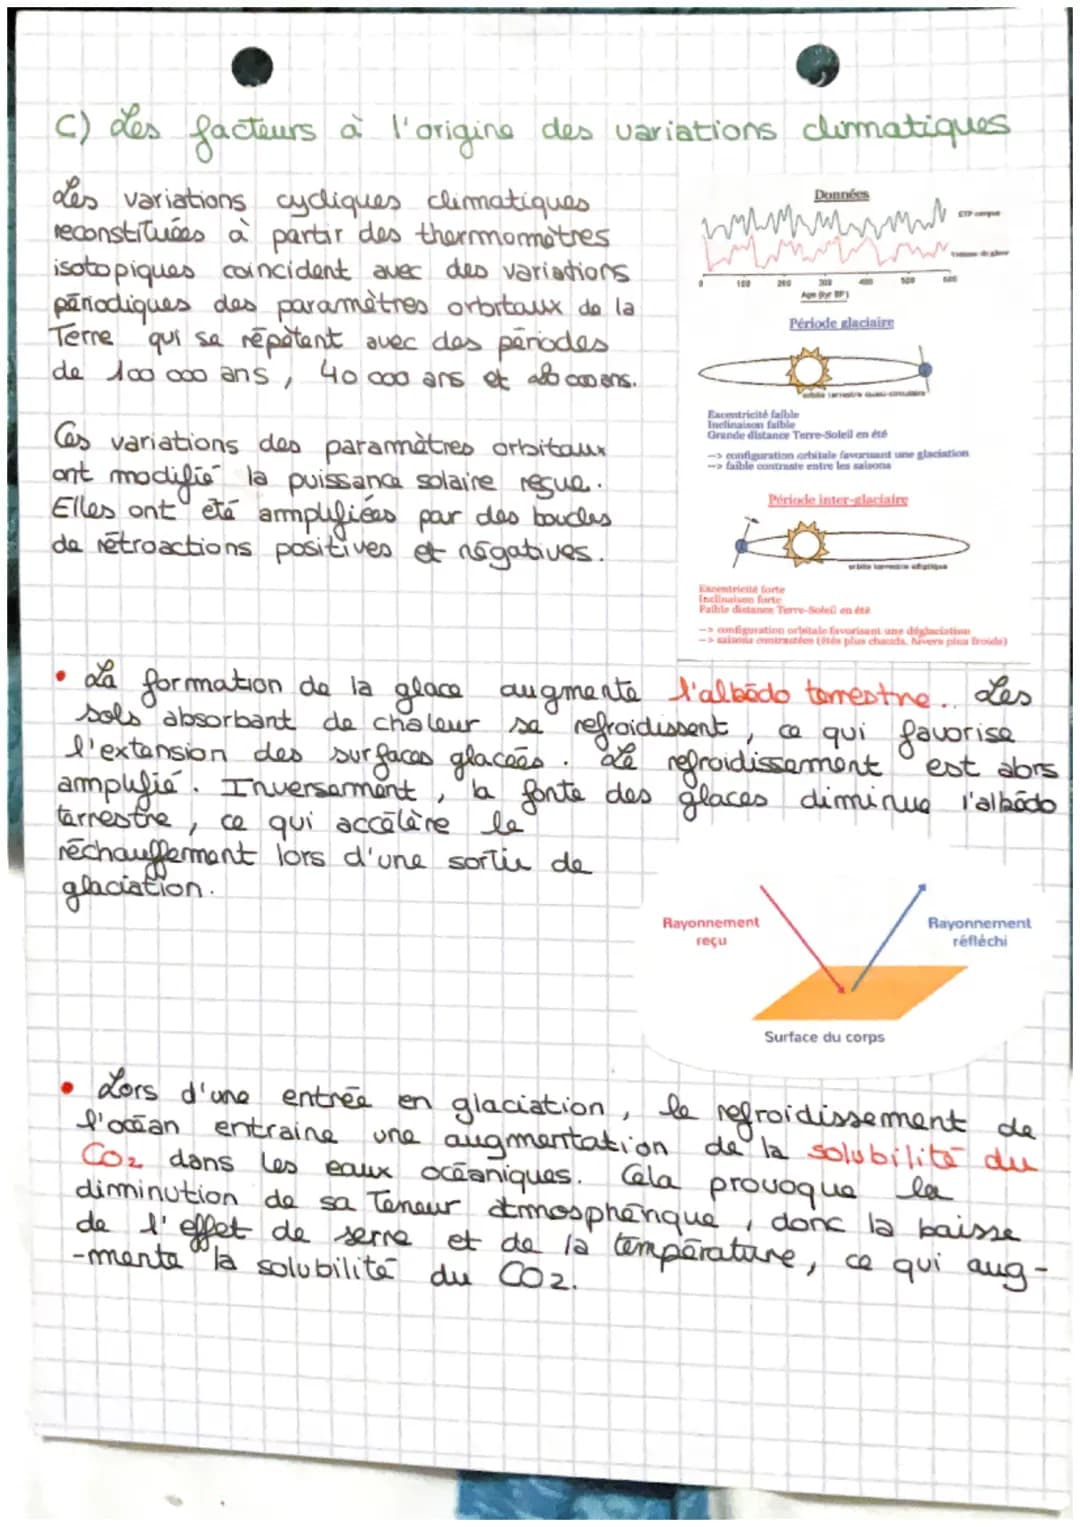 C) Les facteurs à l'origine des variations climatiques
Les variations cycliques climatiques
reconstituées à partir des thermomètres
isotopiques coincident avec des variations
périodiques des paramètres orbitaux de la
Terre qui se répètent avec des périodes
de 100 000 ans, 40 000 ans et
Ces variations des paramètres orbitaux
ont modifié la puissance solaire reçue.
Elles ont été amplifiées par des boucles
de rétroactions positives et négatives.
Données
0 100 200 300 400 500 600
Période glaciaire
orbite terrestre quasi-circulaire
Excentricité faible
Inclinaison faible
Grande distance Terre-Soleil en été
--> configuration orbitale favorisant une glaciation
--> faible contraste entre les saisons
Période inter-glaciaire
orbite terrestre elliptique
Excentricité forte
Inclinaison forte
Faible distance Terre-Soleil en été
--> configuration orbitale favorisant une déglaciation
--> saisons contrastées (étés plus chauds, hivers plus froids)
• La formation de la glace augmente l'albédo terrestre. Les
sols absorbant de chaleur se refroidissent, ce qui favorise
l'extension des surfaces glacées. Le refroidissement est alors
amplifié. Inversement, la fonte des glaces diminue l'albédo
terrestre, ce qui accélère le
réchauffement lors d'une sortie de
glaciation.
Rayonnement
reçu
Rayonnement
réfléchi
Surface du corps
• Lors d'une entrée en glaciation, le refroidissement de
l'océan entraine une augmentation de la solubilité du
CO2 dans les eaux océaniques. Cela provoque la
diminution de sa teneur atmosphérique, donc la baisse
de l'effet de serre et de la température, ce qui aug-
-mente la solubilité du CO2.